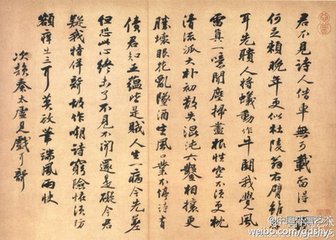 君不見詩人借車無可載留得一錢
何足賴晚年更似杜陵翁右臂雖存
耳先聵人將蟻動作牛鬥我覺風
雷真一噫聞塵掃盡根性空不須更枕
清流派大朴初散失混沌六鑿相攘更
勝壞眼花亂墜酒生風口業不停詩有
債君知五蘊皆是賊人生一病今先差
但恐此心終未了不見不聞還是礙今君
疑我特佯聾故作嘲詩窮險怪須防
額癢出三耳莫放筆端風雨快
次韻秦太虛見戲耳聾
weibo.com/gdshys